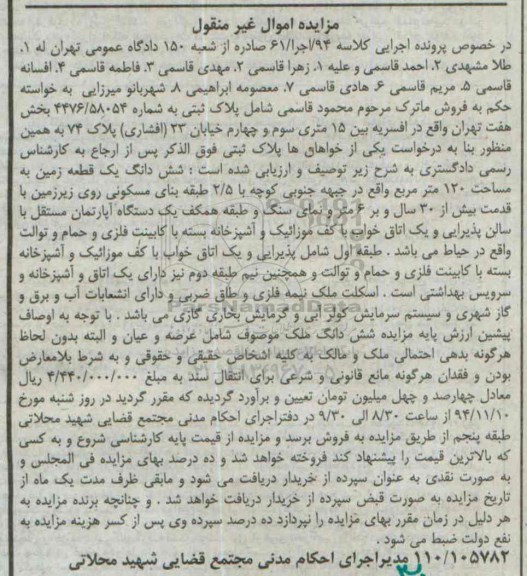 مزایده اموال غیر منقول
در خصوص پرونده اجرایی کلاسه ۶۱/اجرا/۹۴ صادره از شعبه ۱۵۰ دادگاه عمومی تهران له ۱.
طلا مشهدی ۲. احمد قاسمی و علیه ۱. زهرا قاسمی ۲. مهدی قاسمی ۳. فاطمه قاسمی ۴. افسانه
قاسمی ۵. مریم قاسمی ۶. هادی قاسمی ۷. معصومه ابراهیمی ۸. شهربانو میرزایی به خواسته
حکم به فروش ماترک مرحوم محمود قاسمی شامل پلاک ثبتی به شماره ۴۴۷۶/۵۸۰۵۴ بخش
هفت تهران واقع در افسریه بین ۱۵ متری سوم و چهارم خیابان ۲۳ (افشاری) پلاک ۷۴ به همین
منظور بنا به درخواست یکی از خواهان ها پلاک ثبتی فوق الذکر پس از ارجاع به کارشناس
رسمی دادگستری به شرح زیر توصیف و ارزیابی شده است : شش دانگ یک قطعه زمین به
مساحت ۱۲۰ متر مربع واقع در جبهه جنوبی کوچه با ۲/۵ طبقه بنای مسکونی روی زیرزمین با
قدمت بیش از ۳۰ سال و بر ۶ متر و نمای سنگ و طبقه همکف یک دستگاه آپارتمان مستقل با
سالن پذیرایی و یک اتاق خواب با کف موزائیک و آشپزخانه بسته با کابینت فلزی و حمام و توالت
واقع در حیاط می باشد . طبقه اول شامل پذیرایی و یک اتاق خواب با کف موزائیک و آشپزخانه
بسته با کابینت فلزی و حمام و توالت و همچنین نیم طبقه دوم نیز دارای یک اتاق و آشپزخانه و
سرویس بهداشتی است . اسکلت ملک نیمه فلزی و طاق ضربی و دارای انشعابات آب و برق و
گاز شهری و سیستم سرمایش کولر آبی و گرمایش بخاری گازی می باشد . با توجه به اوصاف
پیشین ارزش پایه مزایده شش دانگ ملک موصوف شامل عرضه و عیان و البته بدون لحاظ
هرگونه بدهی احتمالی ملک و مالک به کلیه اشخاص حقیقی و حقوقی و به شرط بلامعارض
بودن و فقدان هرگونه مانع قانونی و شرعی برای انتقال سند به مبلغ ۴/۴۴۰/۰۰۰/۰۰۰ ریال
معادل چهارصد و چهل میلیون تومان تعیین و برآورد گردیده که مقرر گردید در روز شنبه مورخ
۹۴/۱۱/۱۰ از ساعت ۸/۳۰ الی ۹/۳۰ در دفتراجرای احکام مدنی مجتمع قضایی شهید محلاتی
طبقه پنجم از طریق مزایده به فروش برسد و مزایده از قیمت پایه کارشناسی شروع و به کسی
که بالاترین قیمت را پیشنهاد کند فروخته خواهد شد و ده درصد بهای مزایده فی المجلس و
به صورت نقدی به عنوان سپرده از خریدار دریافت می شود و مابقی ظرف مدت یک ماه از
تاریخ مزایده به صورت قبض سپرده از خریدار دریافت خواهد شد . و چنانچه برنده مزایده به
هر دلیل در زمان مقرر بهای مزایده را نپردازد ده درصد سپرده وی پس از کسر هزینه مزایده به
نفع دولت ضبط می شود .
۱۱۰/۱۰۵۷۸۲ مدیراجرای احکام مدنی مجتمع قضایی شهید محلاتی